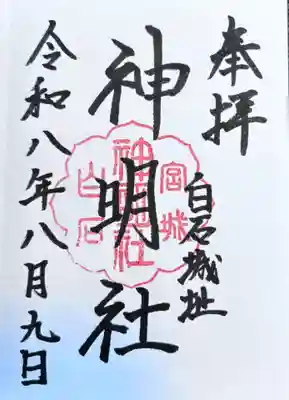 奉拝
白石城址
神明社
宮城
神明社
白石
令和八年八月九日